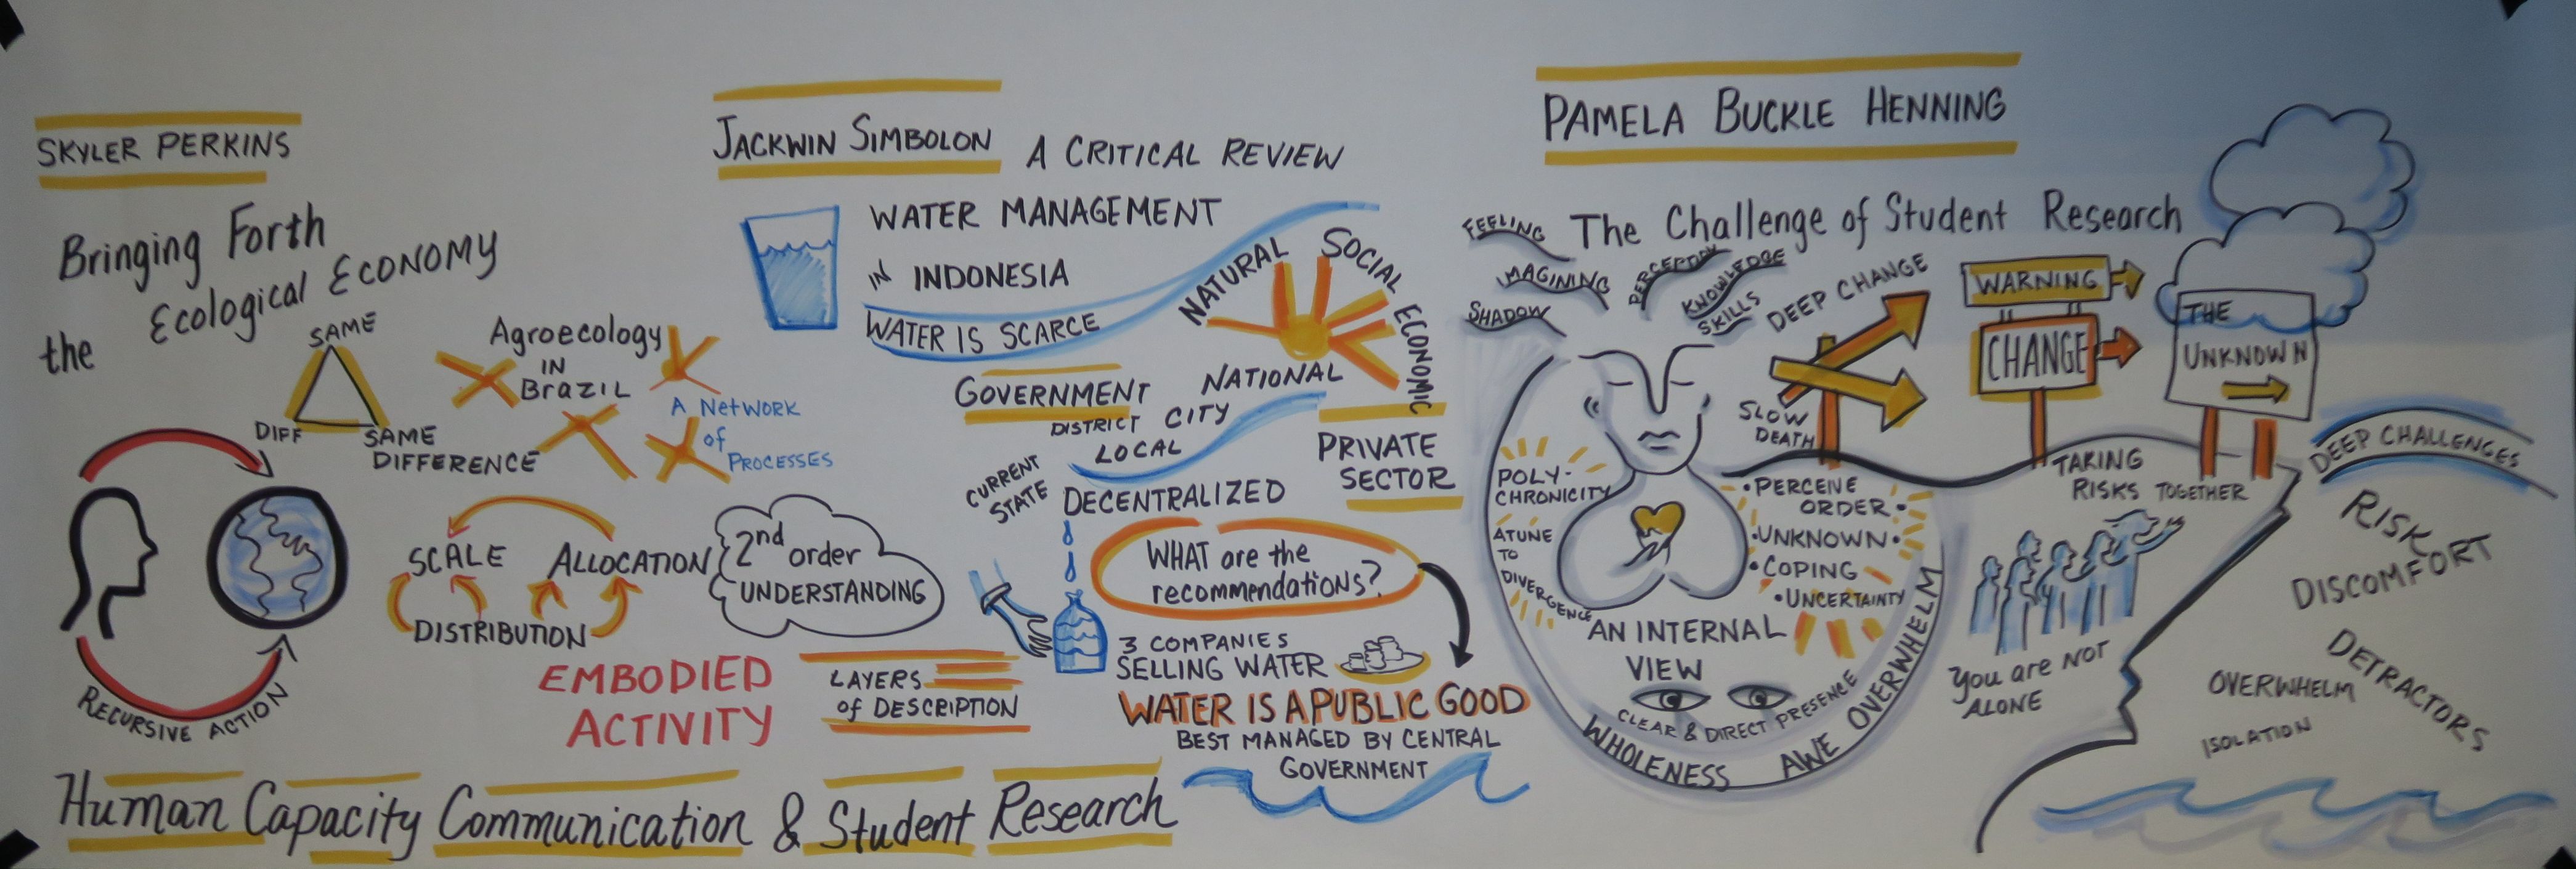 SKYLER PERKINS
Bringing Forth
the Ecological ECONOMY
SAME
DIFF
SAME
DIFFERENCE
Agroecology
IN
BRAZIL
A NETWORK
of
PROCESSES
RECURSIVE ACTION
SCALE
ALLOCATION
DISTRIBUTION
2nd order
UNDERSTANDING
EMBODIED
ACTIVITY
LAYERS
of DESCRIPTION
Human Capacity Communication & Student Research
JACKWIN SIMBOLON
A CRITICAL REVIEW
WATER MANAGEMENT
IN INDONESIA
WATER IS SCARCE
NATURAL
SOCIAL
ECONOMIC
GOVERNMENT
NATIONAL
DISTRICT CITY
LOCAL
PRIVATE
SECTOR
CURRENT
STATE
DECENTRALIZED
WHAT are the
recommendations?
3 COMPANIES
SELLING WATER
WATER IS A PUBLIC GOOD
BEST MANAGED BY CENTRAL
GOVERNMENT
PAMELA BUCKLE HENNING
The Challenge of Student Research
FEELING
IMAGINING
SHADOW
PERCEPTION
KNOWLEDGE
SKILLS
DEEP CHANGE
SLOW
DEATH
WARNING
CHANGE
THE
UNKNOWN
POLY-
CHRONICITY
ATUNE
TO
DIVERGENCE
• PERCEIVE
ORDER •
• UNKNOWN •
• COPING
• UNCERTAINTY
AN INTERNAL
VIEW
CLEAR & DIRECT PRESENCE
WHOLENESS AWE OVERWHELM
TAKING
RISKS TOGETHER
You are NOT
ALONE
DEEP CHALLENGES
RISK
DISCOMFORT
DETRACTORS
OVERWHELM
ISOLATION